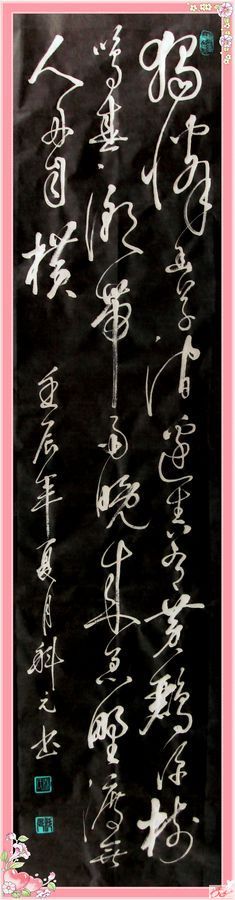 獨憐幽草澗邊生上有黄鸝深樹
鳴春潮帶雨晚來急野渡無
人舟自横
壬辰年夏月科元书